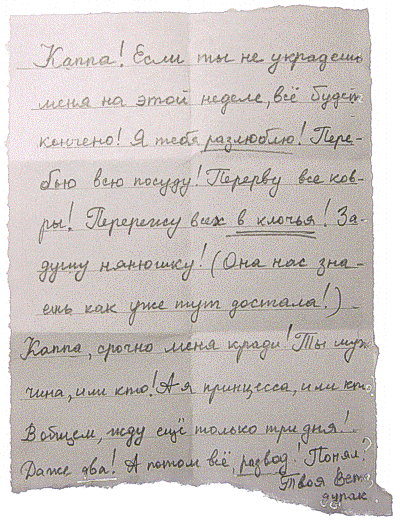 Каппа! Если ты не украдешь
меня на этой неделе, всё будет
кончено! Я тебя разлюблю! Пере-
бью всю посуду! Перерву все ков-
ры! Перережу всех в клочья! За-
душу нянюшку! (Она нас зна-
ешь как уже тут достала!)
Каппа, срочно меня кради! Ты муж-
чина, или кто! А я принцесса, или кто.
В общем, жду ещё только три дня!
Даже два! А потом всё, развод! Понял?
Твоя Вет
дурак